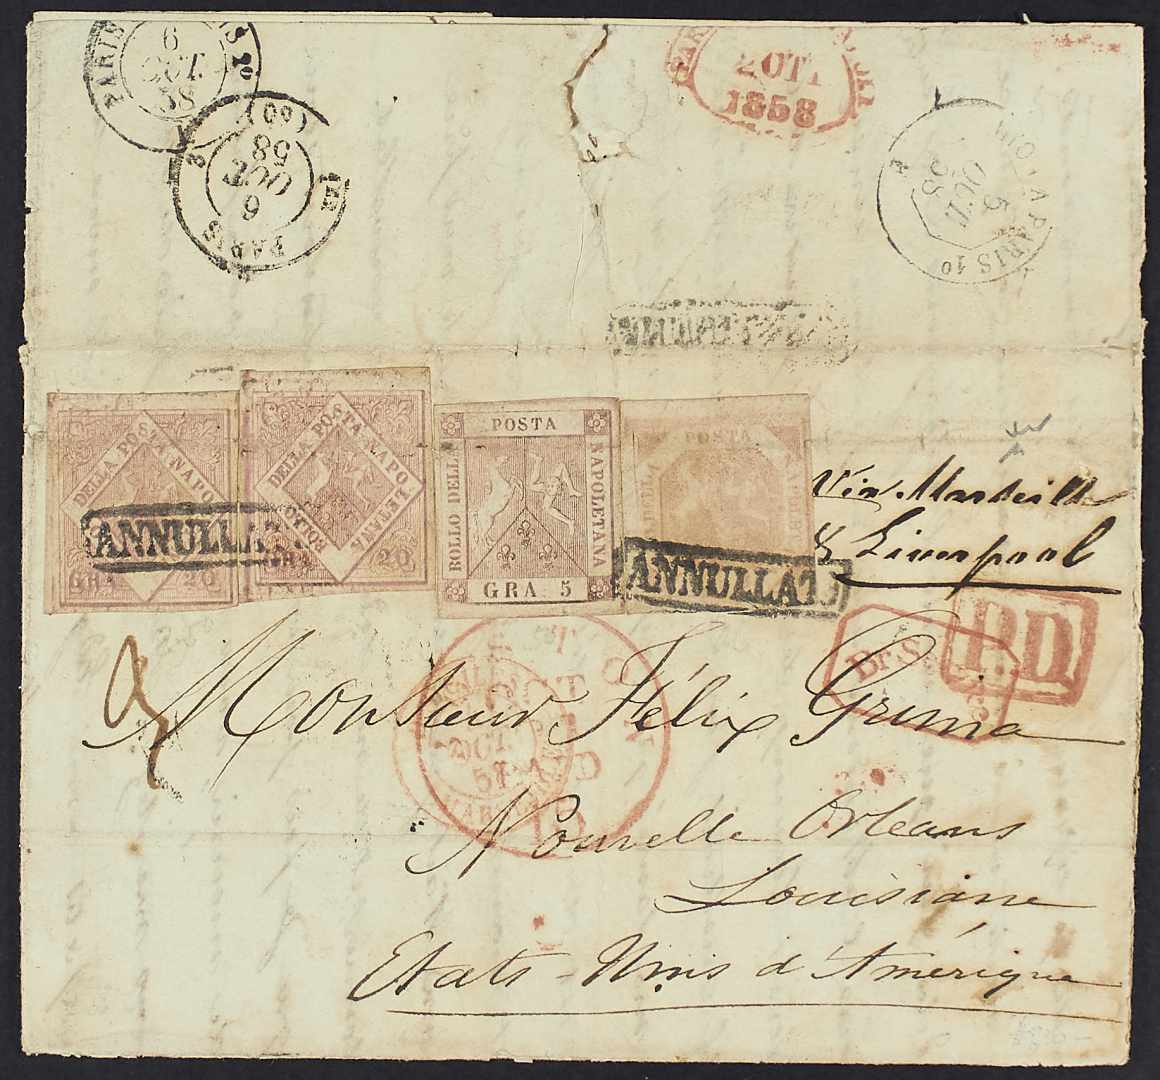 PARIS
6
OCT.
58
PARIS
6
OCT.
58
(60)
2 OTT
1858
A PARIS 1º
5
OCT.
58
DELLA POSTA NAPO
GRA 20
BOLLO DELLA POSTA NAPOLETANA
GRA 20
POSTA
BOLLO DELLA
NAPOLETANA
GRA 5
POSTA
ANNULLAT
ANNULLATO
Via Marseille
& Liverpool
P.D
Br. Se
Monsieur Félix Grima
OCT
OCT.
Nouvelle Orleans
Louisiane
Etats-Unis d'Amérique